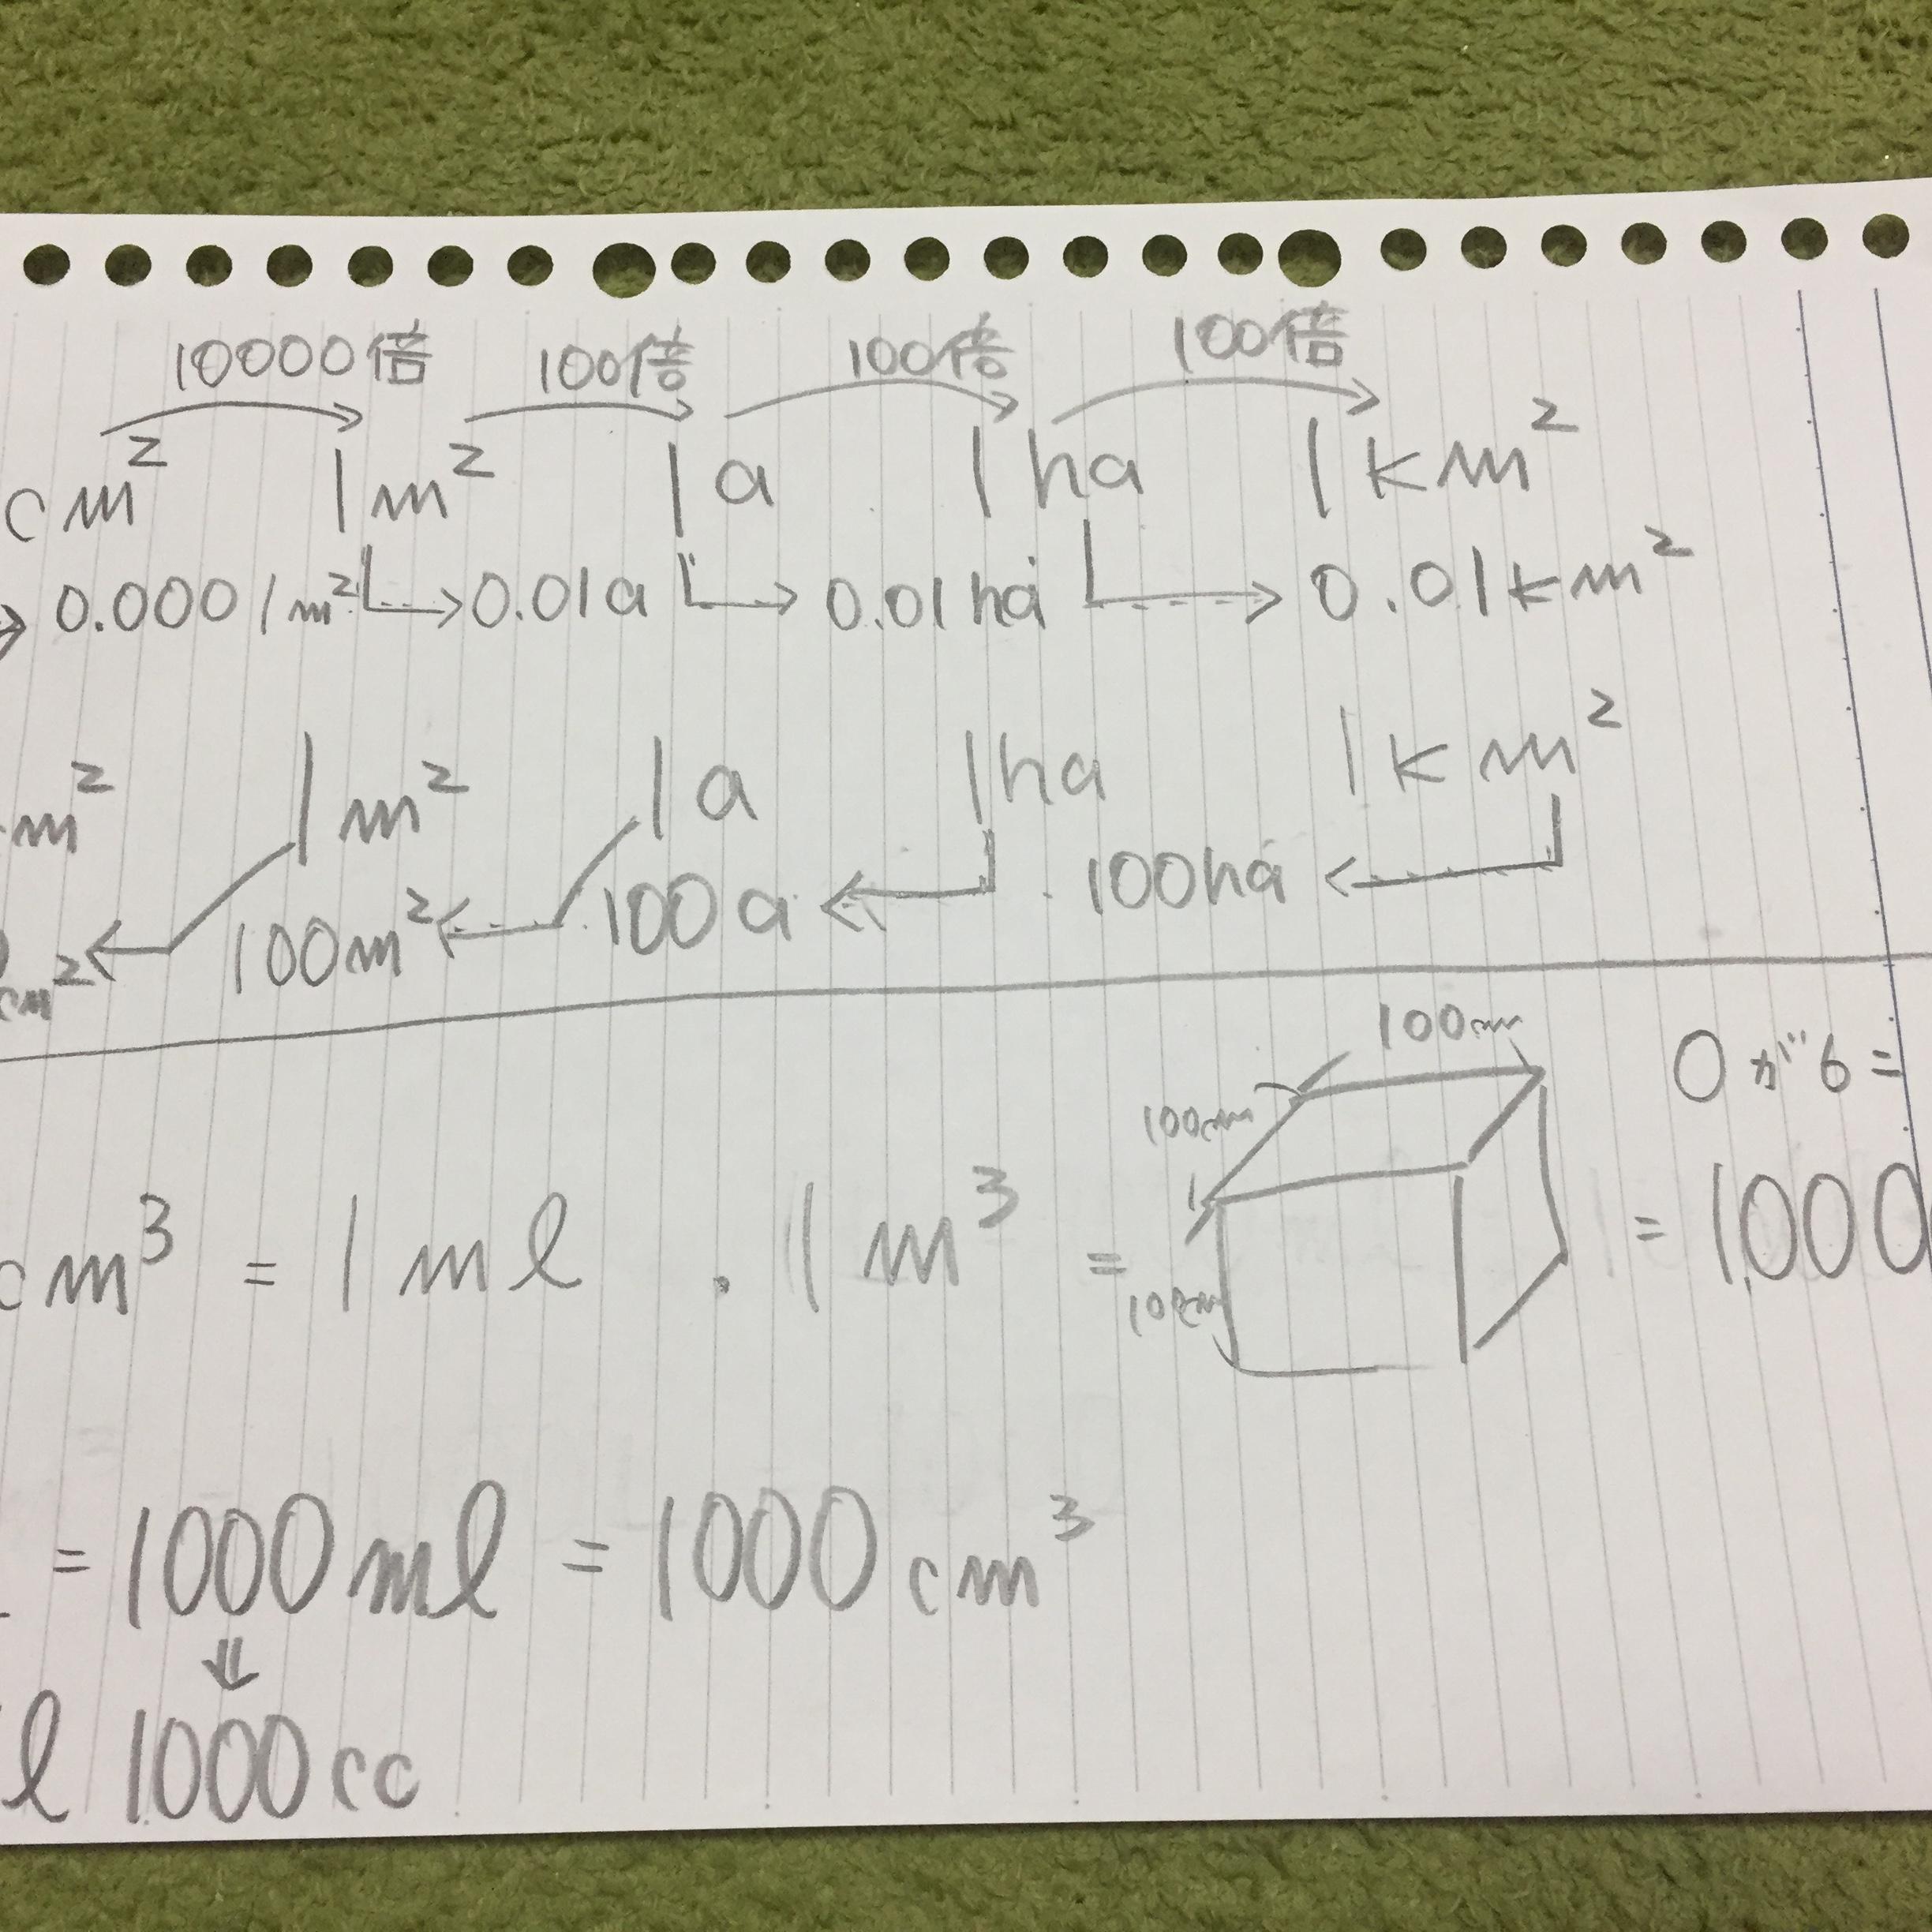 10000倍 100倍 100倍 100倍
cm² 1m² 1a 1ha 1km²
→ 0.0001m² → 0.01a → 0.01ha → 0.01km²
m² 1m² 1a 1ha 1km²
cm² ← 100m² ← 100a ← 100ha ←
100cm 0が6=
100cm
cm³ = 1ml . 1m³ = = 1000
100cm
= 1000ml = 1000cm³
⇓
l 1000cc